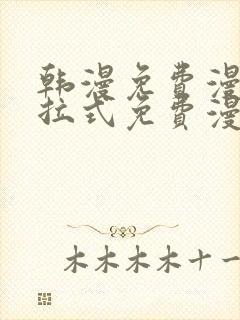 韩漫免费漫
拉式免费漫
木木木木十一